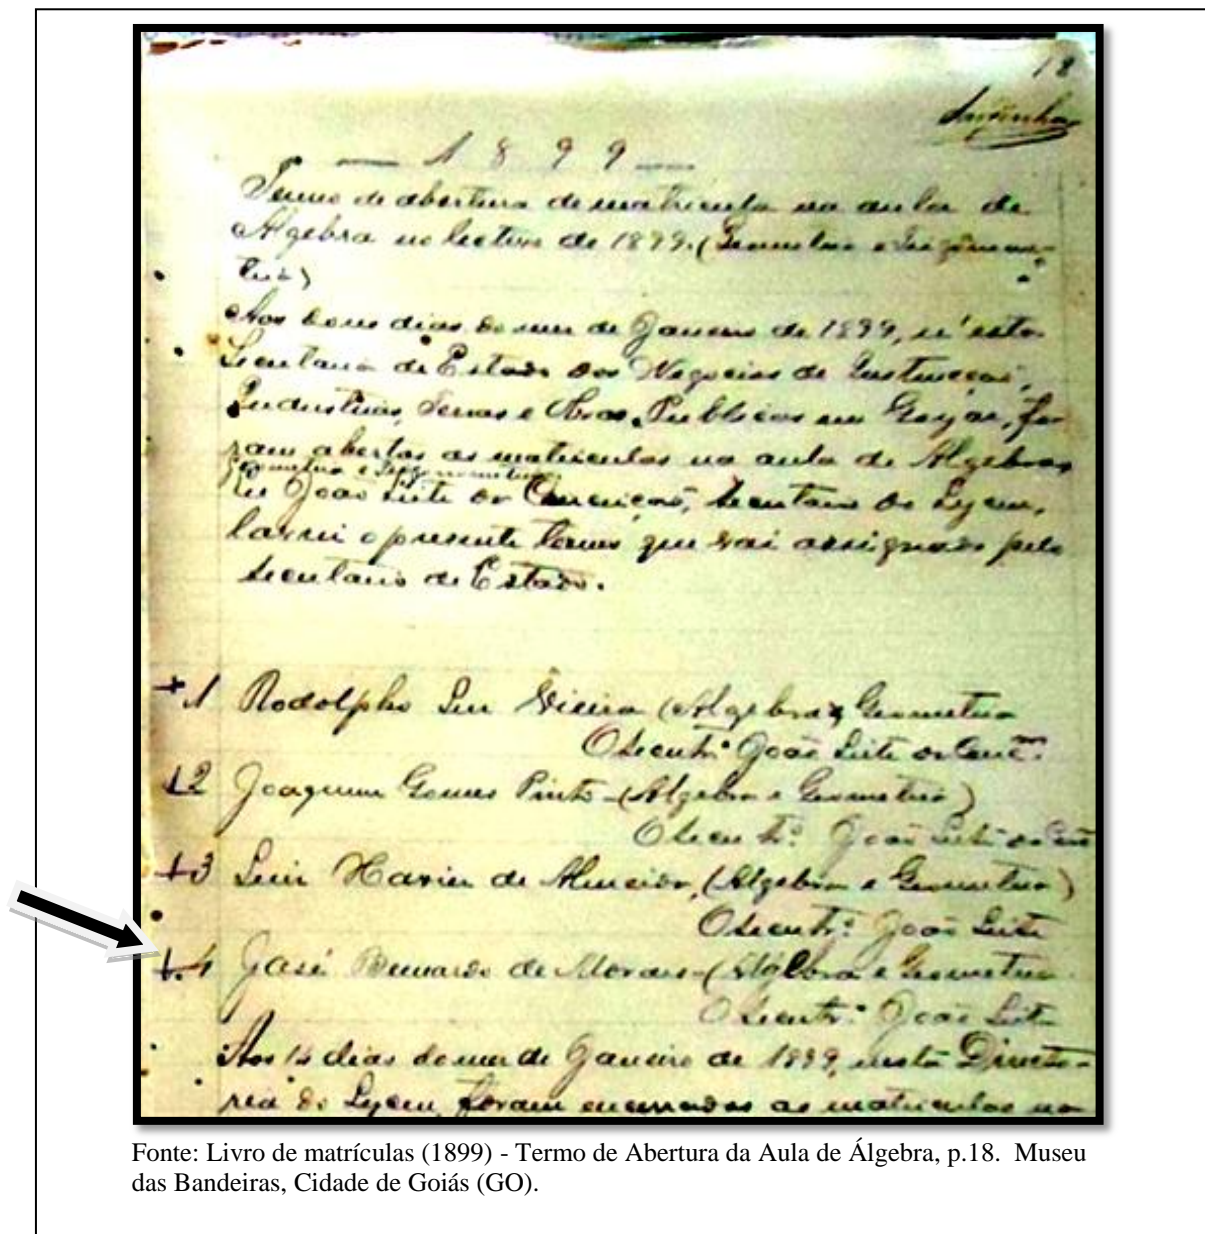 18
— 1899 —
Termo de abertura de matricula na aula de
Algebra no lectivo de 1899. (Geometria e Trigonome-
tria)
Aos dias do mez de Janeiro de 1899, n'esta
Secretaria de Estado dos Negocios de Instrucção,
Industrias, Terras e Obras Publicas em Goyaz, fo-
ram abertas as matriculas na aula de Algebra,
Geometria e Trigonometria
Eu João Leite da Conceição, Secretario do Lyceu,
lavrei o presente termo que vai assignado pelo
Secretario de Estado.
+1 Rodolpho Luz Vieira (Algebra e Geometria
O Secretº João Leite
+2 Joaquim Gomes Pinto - (Algebra e Geometria)
O Secretº João Leite
+3 Luiz Xavier de Almeida, (Algebra e Geometria)
O Secretº João Leite
+4 José Bernardo de Moraes - (Algebra e Geometria
O Secretº João Leite
Aos 14 dias do mez de Janeiro de 1899, nesta Directo-
ria do Lyceu, foram encerradas as matriculas na
Fonte: Livro de matrículas (1899) - Termo de Abertura da Aula de Álgebra, p.18. Museu
das Bandeiras, Cidade de Goiás (GO).